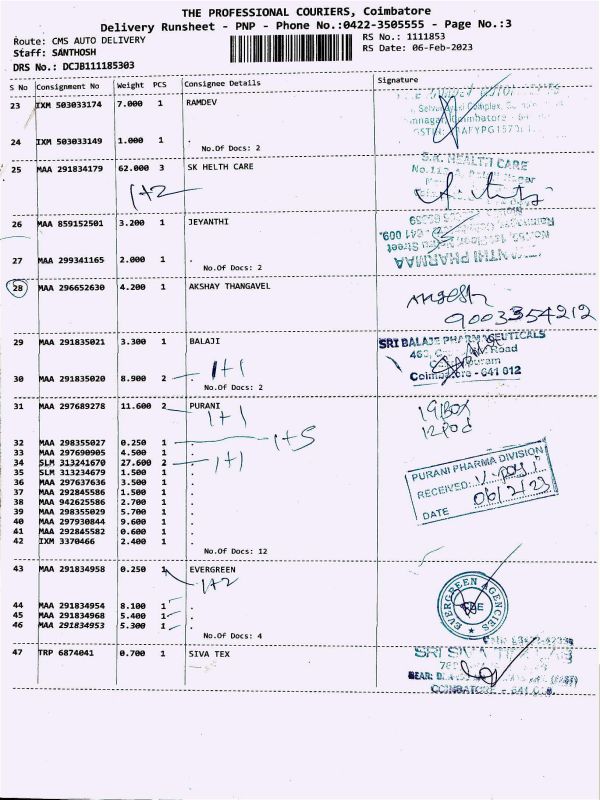 THE PROFESSIONAL COURIERS, Coimbatore
Delivery Runsheet - PNP - Phone No.:0422-3505555 - Page No.:3
Route: CMS AUTO DELIVERY RS No.: 1111853
Staff: SANTHOSH RS Date: 06-Feb-2023
DRS No.: DCJB111185303
S No Consignment No Weight PCS Consignee Details Signature
23 IXM 503033174 7.000 1 RAMDEV
24 IXM 503033149 1.000 1 .
No.Of Docs: 2
25 MAA 291834179 62.000 3 SK HELTH CARE
S.K. HEALTH CARE
1+2
26 MAA 859152501 3.200 1 JEYANTHI
27 MAA 299341165 2.000 1 .
No.Of Docs: 2
28 MAA 296652630 4.200 1 AKSHAY THANGAVEL
9003354212
29 MAA 291835021 3.300 1 BALAJI
SRI BALAJE PHARMACEUTICALS
Road
Coimbatore - 641 012
1+1
30 MAA 291835020 8.900 2 .
No.Of Docs: 2
31 MAA 297689278 11.600 2 PURANI
1+1
19 Box
12 Pod
32 MAA 298355027 0.250 1 .
1+5
33 MAA 297690905 4.500 1 .
34 SLM 313241670 27.600 2 . 1+1
35 SLM 313234679 1.500 1 .
36 MAA 297637636 3.500 1 .
37 MAA 292845586 1.500 1 .
38 MAA 942625586 2.700 1 .
39 MAA 298355029 5.700 1 .
40 MAA 297930844 9.600 1 .
41 MAA 292845582 0.600 1 .
42 IXM 3370466 2.400 1 .
No.Of Docs: 12
PURANI PHARMA DIVISION
RECEIVED:
DATE 06/2/23
43 MAA 291834958 0.250 1 EVERGREEN
1+2
44 MAA 291834954 8.100 1 .
45 MAA 291834968 5.400 1 .
46 MAA 291834953 5.300 1 .
No.Of Docs: 4
EVERGREEN AGENCIES
47 TRP 6874041 0.700 1 SIVA TEX
COIMBATORE